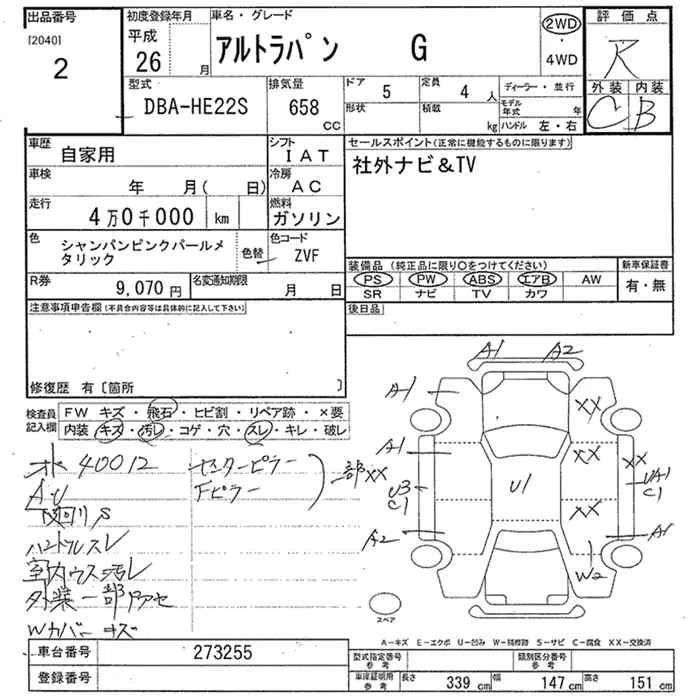 出品番号 初度登録年月 車名・グレード 評価点
[2040] 平成 2WD
2 26 月 アルトラパン G ・ 4WD R
型式 排気量 ドア 5 定員 4 人 ディーラー・並行 外装 内装
DBA-HE22S 658 cc 形状 積載 kg モデル年式 年 C B
ハンドル 左・右
車歴 自家用 シフト IAT セールスポイント(正常に機能するものに限ります)
車検 年 月( 日) 冷房 AC 社外ナビ&TV
走行 4万0千000 km 燃料 ガソリン
色 シャンパンピンクパールメタリック 色替 色コード ZVF
R券 9,070円 名変通知期限 月 日
装備品(純正品に限り〇をつけてください) 新車保証書
PS PW ABS エアB AW 有・無
SR ナビ TV カワ
注意事項申告欄(不具合内容等は具体的に記入して下さい) 後日品
修復歴 有〔箇所 〕
検査員記入欄 FW キズ・飛石・ヒビ割・リペア跡・×要
内装 キズ・汚レ・コゲ・穴・スレ・キレ・破レ
40012 センターピラー 一部XX
AU Fピラー
ハンドルスレ
室内ウス汚レ
外装一部色アセ
Wカバーキズ
A1 A2
A1 XX
A1 XX XX
U3 C1 U1 UA1 C1
XX
A2 A1
W2
スペア
A-キズ E-エクボ U-凹み W-補修跡 S-サビ C-腐食 XX-交換済
車台番号 273255 型式指定番号 参考 類別区分番号 参考
登録番号 車庫証明用 参考 長さ 339 cm 幅 147 cm 高さ 151 cm